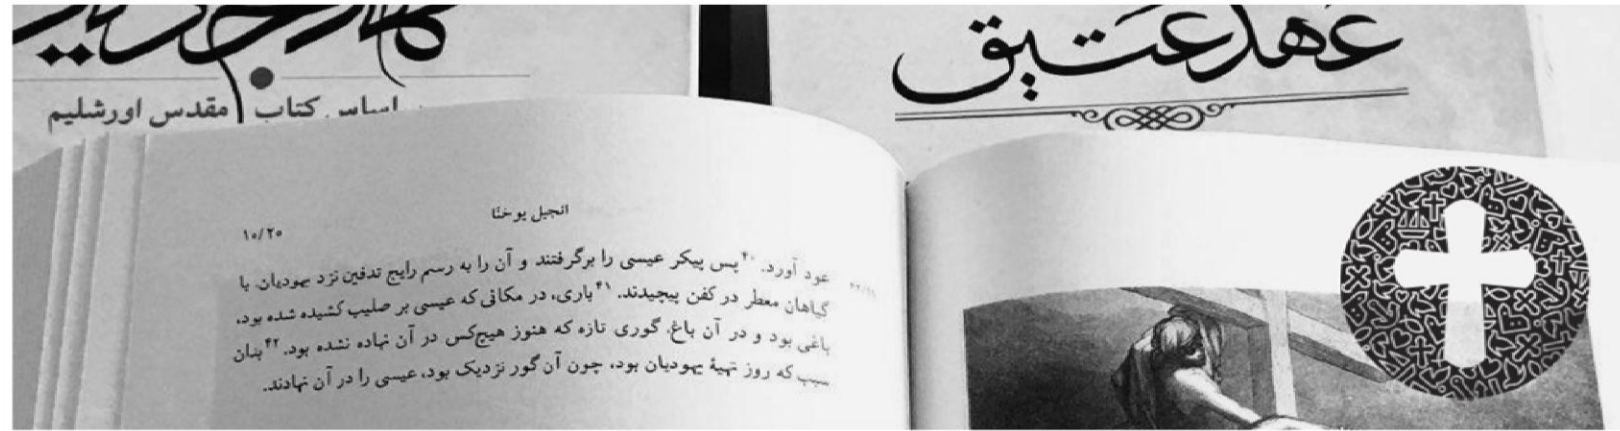 عهد جدید
اساس کتاب مقدس اورشلیم
عهد عتیق
انجیل یوحنّا
۱۰/۲۰
عود آورد. ۴۰پس پیکر عیسی را برگرفتند و آن را به رسم رایج تدفین نزد یهودیان، با
گیاهان معطر در کفن پیچیدند. ۴۱باری، در مکانی که عیسی بر صلیب کشیده شده بود،
باغی بود و در آن باغ، گوری تازه که هنوز هیچ‌کس در آن نهاده نشده بود. ۴۲بدان
سبب که روز تهیهٔ یهودیان بود، چون آن گور نزدیک بود، عیسی را در آن نهادند.